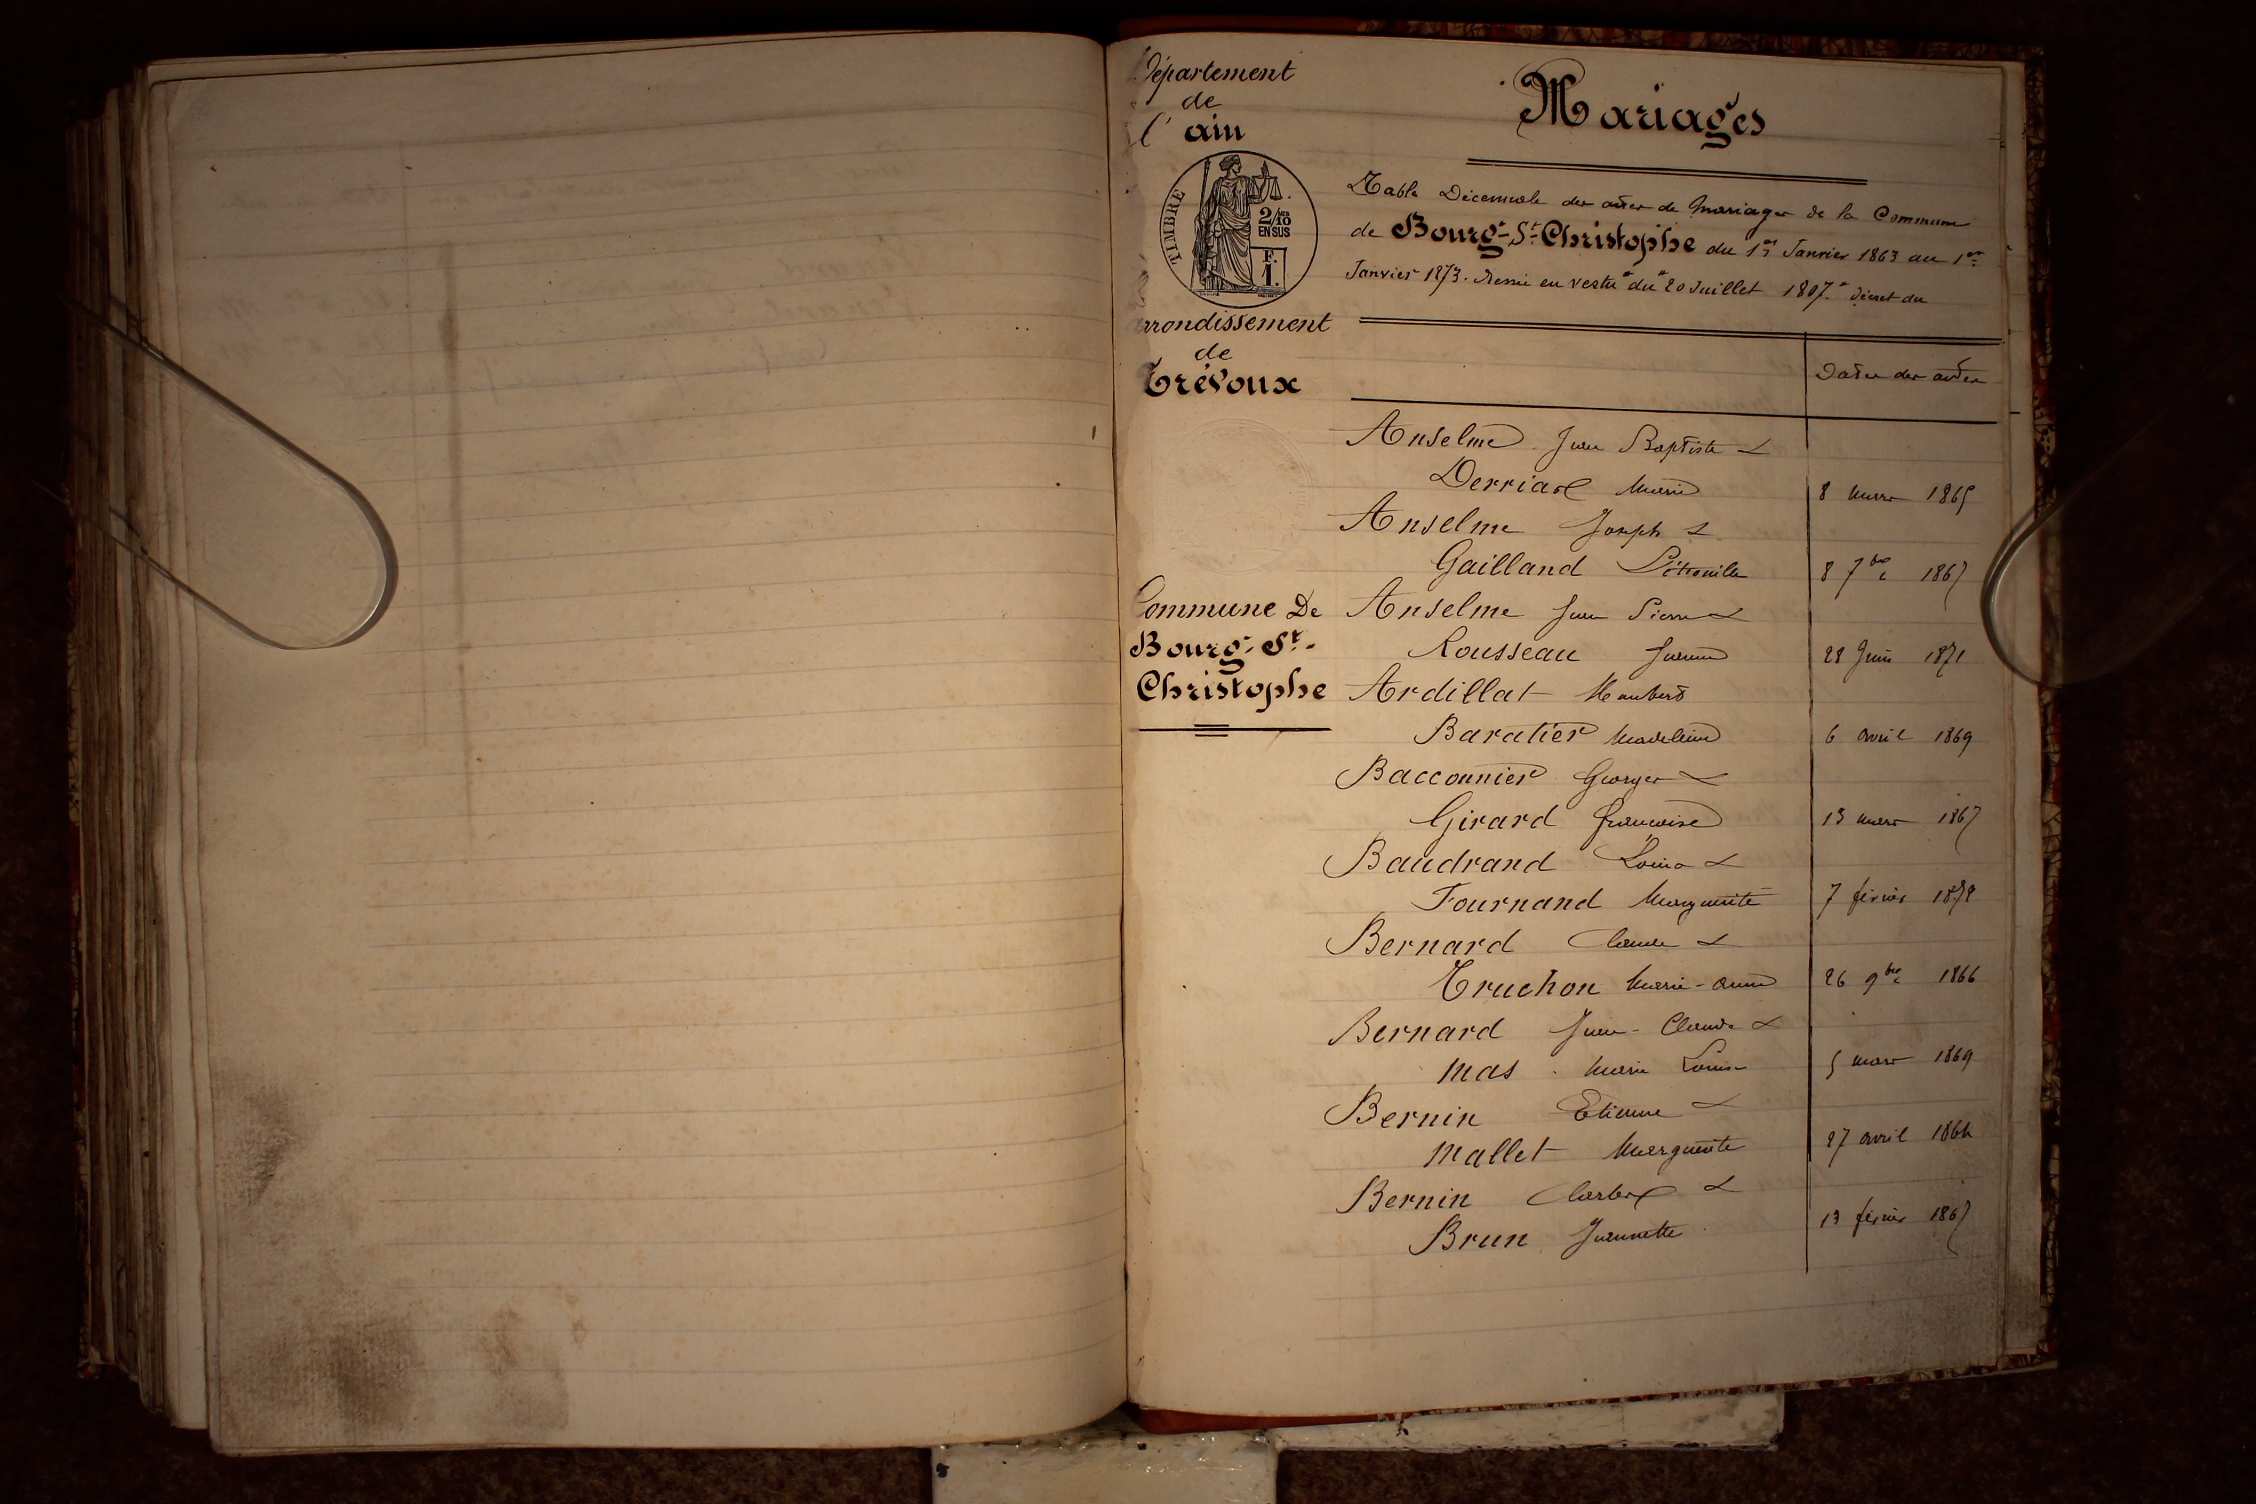 Département
de
l'ain
TIMBRE
2/10
EN SUS
F.
1.
arrondissement
de
Trévoux
Commune De
Bourg-St-
Christophe
Mariages
Table Décennale des actes de Mariages de la Commune
de Bourg-St-Christophe du 1er Janvier 1863 au 1er
Janvier 1873. en vertu du 20 Juillet 1807. Décret du
Dates des actes
Anselme Jean Baptiste &
Derriaz Marie 8 mars 1865
Anselme Joseph &
Gailland Pétronille 8 7bre 1867
Anselme Jean Pierre &
Rousseau Jeanne 28 Juin 1871
Ardillat Humbert
Baratier Madeleine 6 avril 1869
Bacconnier Georges &
Girard françoise 13 mars 1867
Baudrand Louis &
Fournand Marguerite 7 février 1872
Bernard Claude &
Truchon Marie-anne 26 9bre 1866
Bernard Jean-Claude &
Mas Marie Louise 5 mars 1869
Bernin Etienne &
Mallet Marguerite 27 avril 1864
Bernin &
Brun Jeannette 13 février 1867